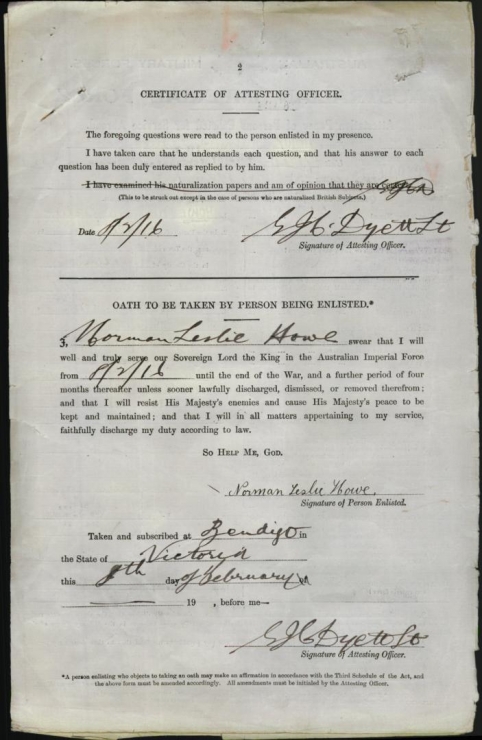 2
CERTIFICATE OF ATTESTING OFFICER.
The foregoing questions were read to the person enlisted in my presence.
I have taken care that he understands each question, and that his answer to each
question has been duly entered as replied to by him.
I have examined his naturalization papers and am of opinion that they are
(This to be struck out except in the case of persons who are naturalized British Subjects.)
Date 8/2/16
G J C Dyett Lt
Signature of Attesting Officer.
OATH TO BE TAKEN BY PERSON BEING ENLISTED.*
I, Norman Leslie Howe swear that I will
well and truly serve our Sovereign Lord the King in the Australian Imperial Force
from 8/2/16 until the end of the War, and a further period of four
months thereafter unless sooner lawfully discharged, dismissed, or removed therefrom;
and that I will resist His Majesty's enemies and cause His Majesty's peace to be
kept and maintained; and that I will in all matters appertaining to my service,
faithfully discharge my duty according to law.
SO HELP ME, GOD.
Norman Leslie Howe.
Signature of Person Enlisted.
Taken and subscribed at Bendigo in
the State of Victoria
this 8th day of February
19 , before me—
G J C Dyett Lt
Signature of Attesting Officer.
*A person enlisting who objects to taking an oath may make an affirmation in accordance with the Third Schedule of the Act, and
the above form must be amended accordingly. All amendments must be initialed by the Attesting Officer.